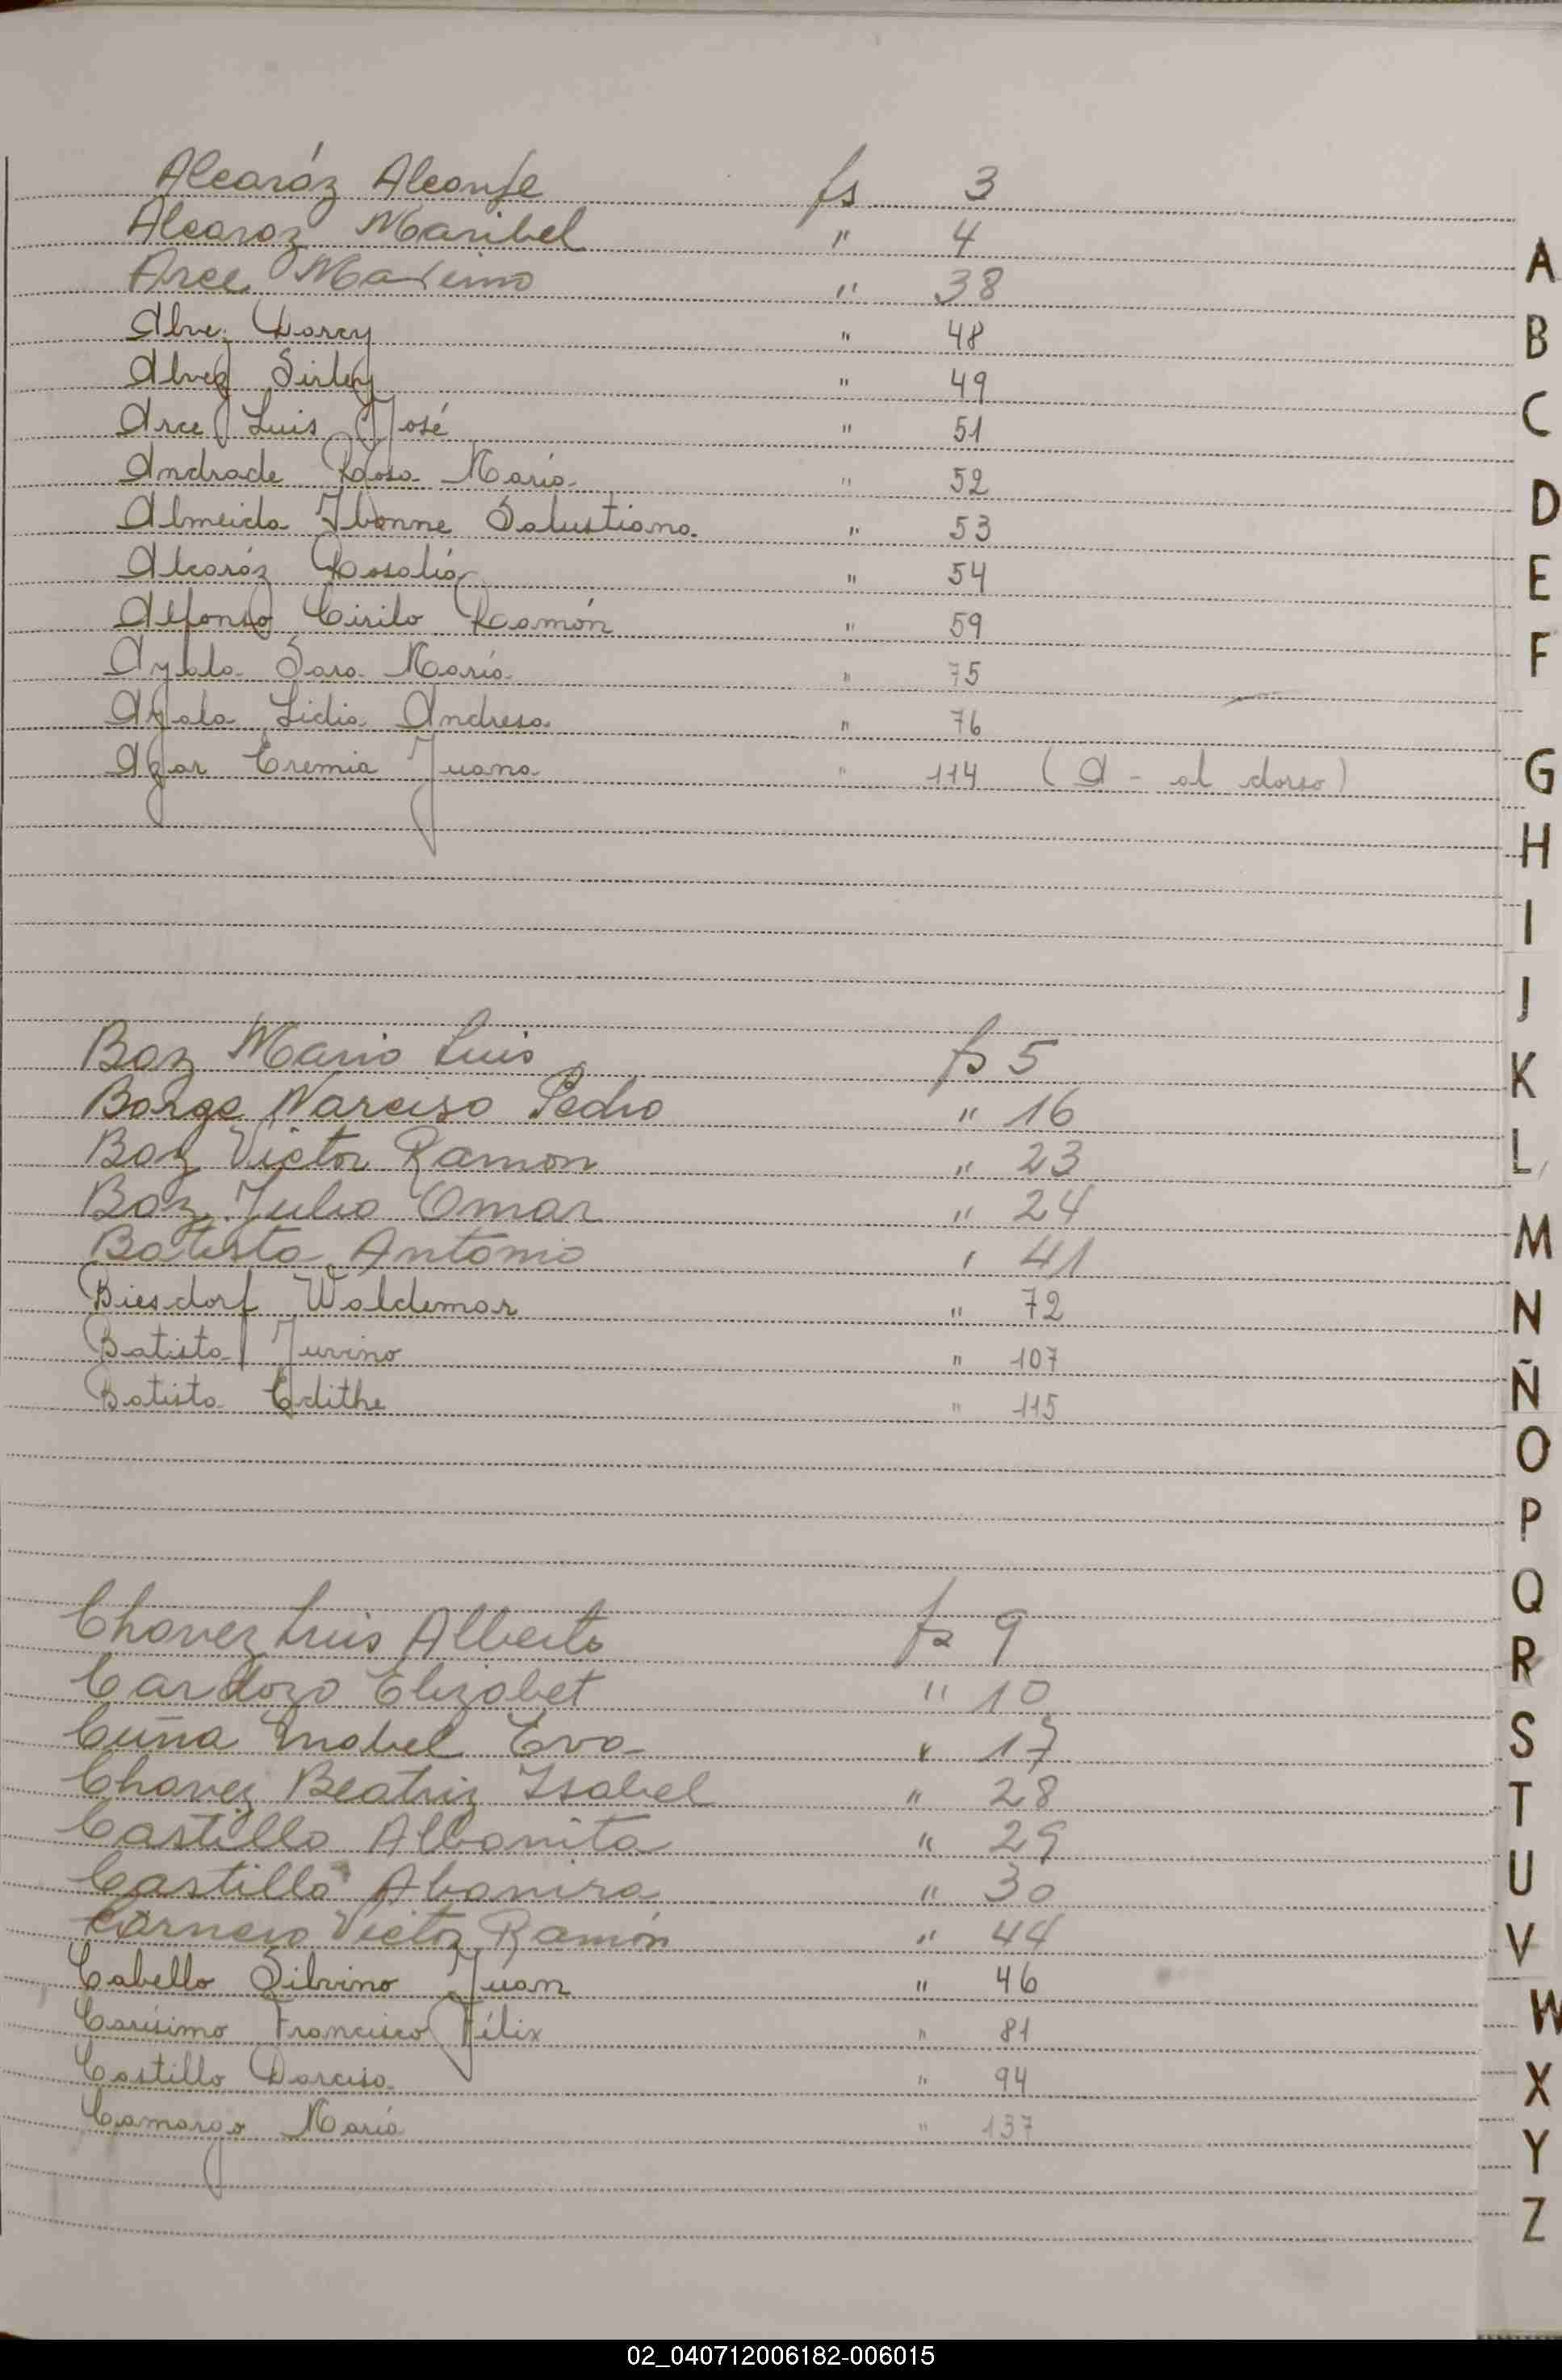 Alcaráz Alcanje fs 3
Alcaraz Maribel " 4
Arce Maximo " 38
Alvez Darcy " 48
Alvez Sirley " 49
Arce Luis José " 51
Andrade Rosa María " 52
Almeida Ibonne Salustiana " 53
Alcaráz Rosalía " 54
Alfonso Cirilo Ramón " 59
Ayala Sara María " 75
Ayala Lidia Andresa " 76
Agar Eremia Juana " 114 (A - al dorso)
Baz Mario Luis fs 5
Borge Narciso Pedro " 16
Baz Victor Ramon " 23
Baz Julio Omar " 24
Batista Antonio " 41
Biesdorf Waldemar " 72
Batista Juvino " 107
Batista Edithe " 115
Chavez Luis Alberto fs 9
Cardozo Elizabet " 10
Cuña Mabel Eva " 17
Chavez Beatriz Isabel " 28
Castillo Albanita " 29
Castillo Abanira " 30
Carneio Victor Ramón " 44
Cabello Silvino Juan " 46
Carísimo Francisco Félix " 81
Castillo Darcisa " 94
Camargo María " 137
A
B
C
D
E
F
G
H
I
J
K
L
M
N
Ñ
O
P
Q
R
S
T
U
V
W
X
Y
Z
02_040712006182-006015